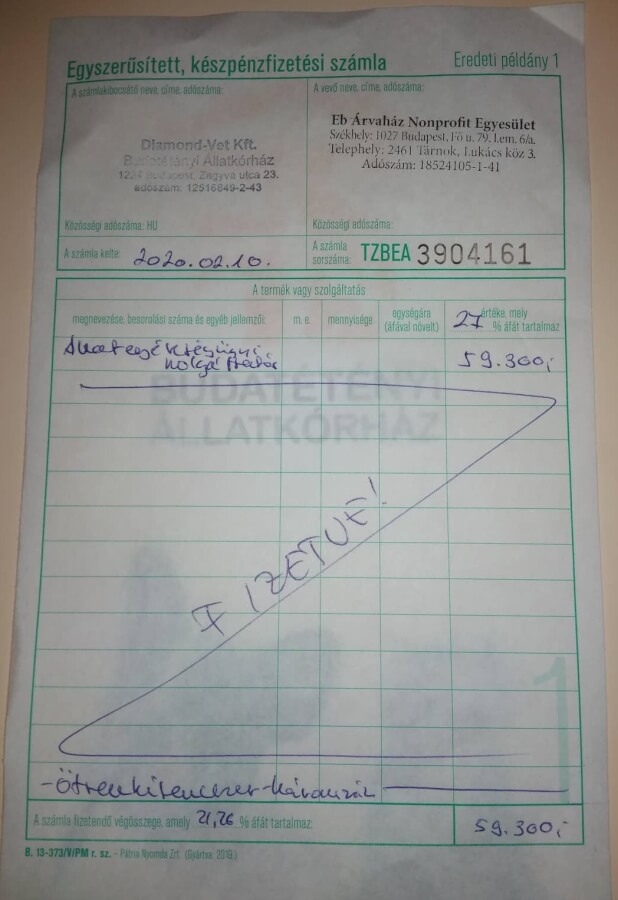 Egyszerűsített, készpénzfizetési számla
Eredeti példány 1
A számlakibocsátó neve, címe, adószáma:
Diamond-Vet Kft.
Budatétényi Állatkórház
1224 Budapest, Zagyva utca 23.
adószám: 12516849-2-43
Közösségi adószáma: HU
A vevő neve, címe, adószáma:
Eb Árvaház Nonprofit Egyesület
Székhely: 1027 Budapest, Fő u. 79. Lem. 6/a.
Telephely: 2461 Tárnok, Lukács köz 3.
Adószám: 18524105-1-41
Közösségi adószáma:
A számla kelte: 2020.02.10.
A számla sorszáma: TZBEA 3904161
A termék vagy szolgáltatás
megnevezése, besorolási száma és egyéb jellemzői:
m. e.
mennyisége
egységára (áfával növelt)
27 értéke, mely % áfát tartalmaz
Állategészségügyi
szolgáltatás
59.300,-
BUDATÉTÉNYI
ÁLLATKÓRHÁZ
FIZETVE!
1
-Ötvenkilencezer-háromszáz
A számla fizetendő végösszege, amely 21,26 % áfát tartalmaz:
59.300,-
B. 13-373/V/PM r. sz. – Pátria Nyomda Zrt. (Gyártva: 2019.)